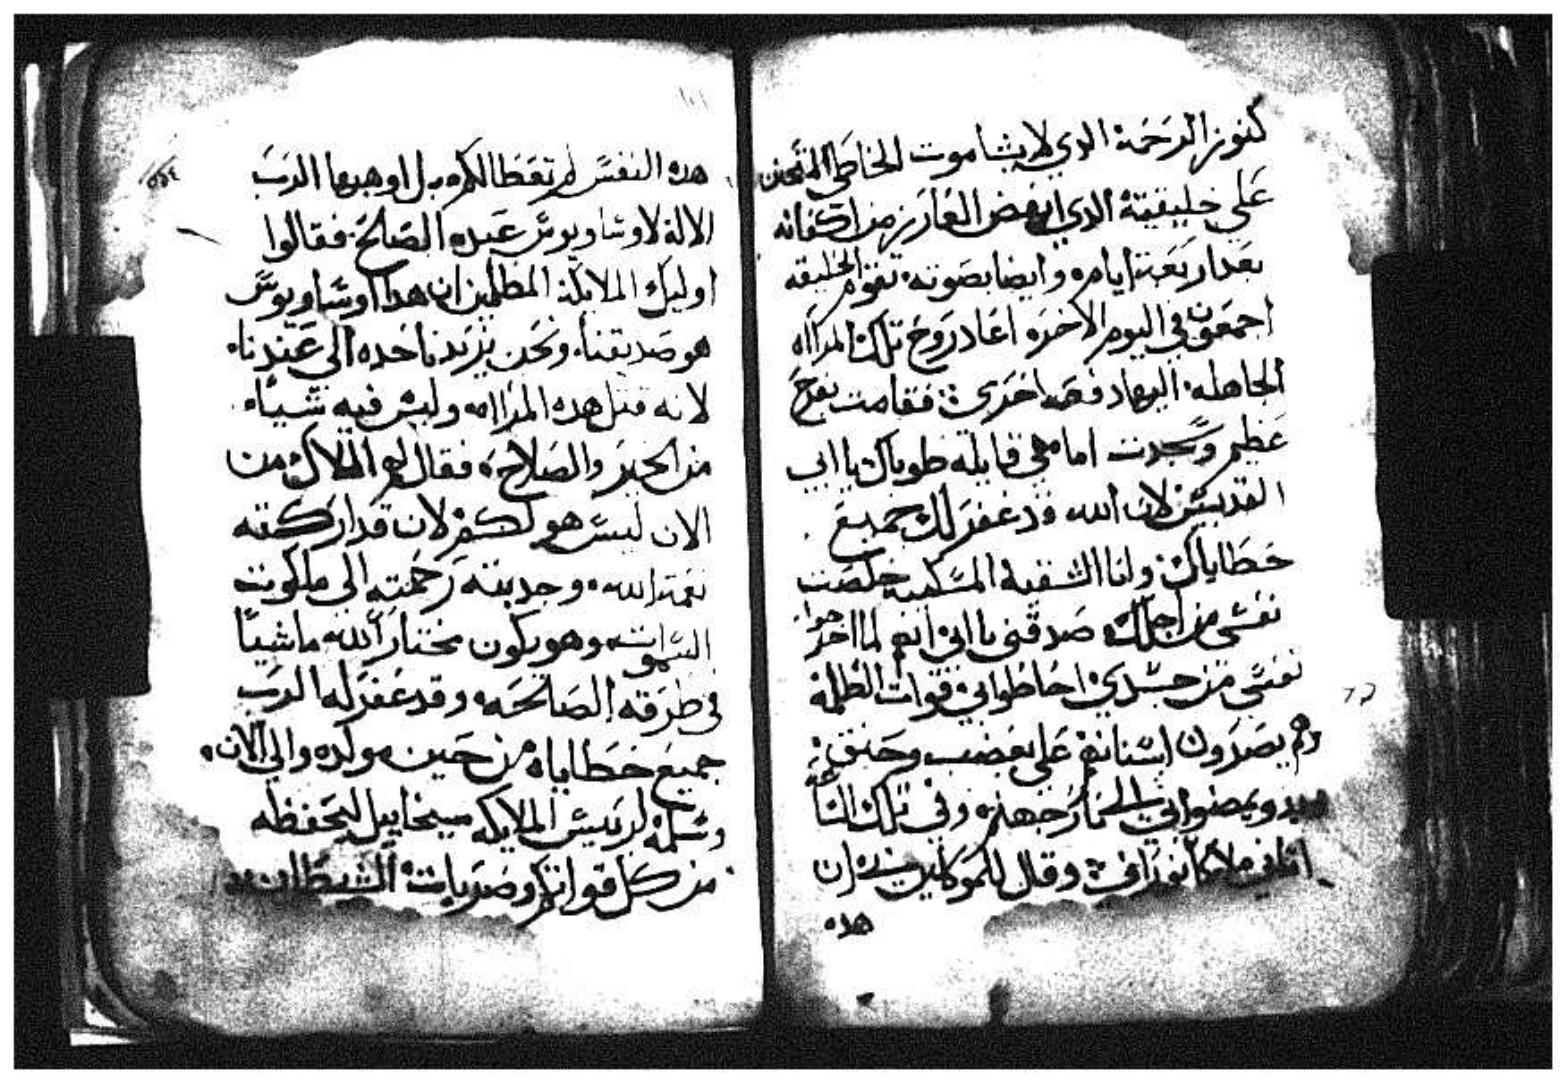 كنوز الرحمة الدي لا يشا موت الخاطي المتحنن
على خليقيتة الدي انهض العازر من اكفانه
بعد اربعة ايام وايضا بصوته تقوم الخليقه
اجمعون في اليوم الاخره اعاد روح تلك المراه
الجاهله اليها دفعه اخرى فقامت بفرح
عظيم وسجدت امامي قايله طوباك يا ابي
القديس لان الله قد غفر لك جميع
خطاياك وانا الشقية المسكينه خلصت
نفسي من اجلك صدقني يا ابي انهم لما اخرجوا
نفسي من جسدي احاطوا بي قوات الظلمة
وهم يصرون اسنانهم علي بغضب وحنق
ويمضوا بي الى نار جهنم وفي تلك الساعة
اتاني ملاكا نوراني وقال للموكلين ان
هده
١٠١
هده النفس لم تعطا لكم بل اوهبها الرب
الالة لاوشاويوس عبده الصالح فقالوا
اوليك الملايكة المظلمين ان هدا اوشاويوس
هو صديقنا ونحن نريد ناخده الى عندنا
لانه قتل هده المراه وليس فيه شياء
من الخير والصلاح فقال لهم الملاك من
الان ليس هو لكم لان قد ادركته
نعمة الله وجدبته رحمته الى ملكوت
السموات وهو يكون مختار الله ماشيا
في طرقه الصالحه وقد غفر له الرب
جميع خطاياه من حين مولده والى الان
وسلمه لرييس الملايكه ميخاييل ليحفظه
من كل قواتكم وضربات الشيطان